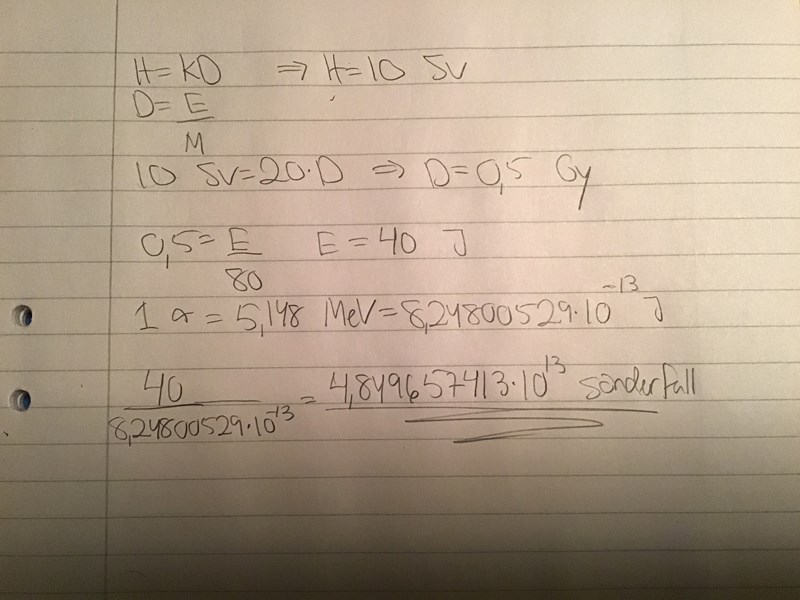 H=KD ⇒ H=10 Sv
D=E/M
10 Sv=20·D ⇒ D=0,5 Gy
0,5=E/80 E=40 J
1 α = 5,148 MeV=8,24800529·10^-13 J
40/8,24800529·10^-13 = 4,849657413·10^13 sönderfall